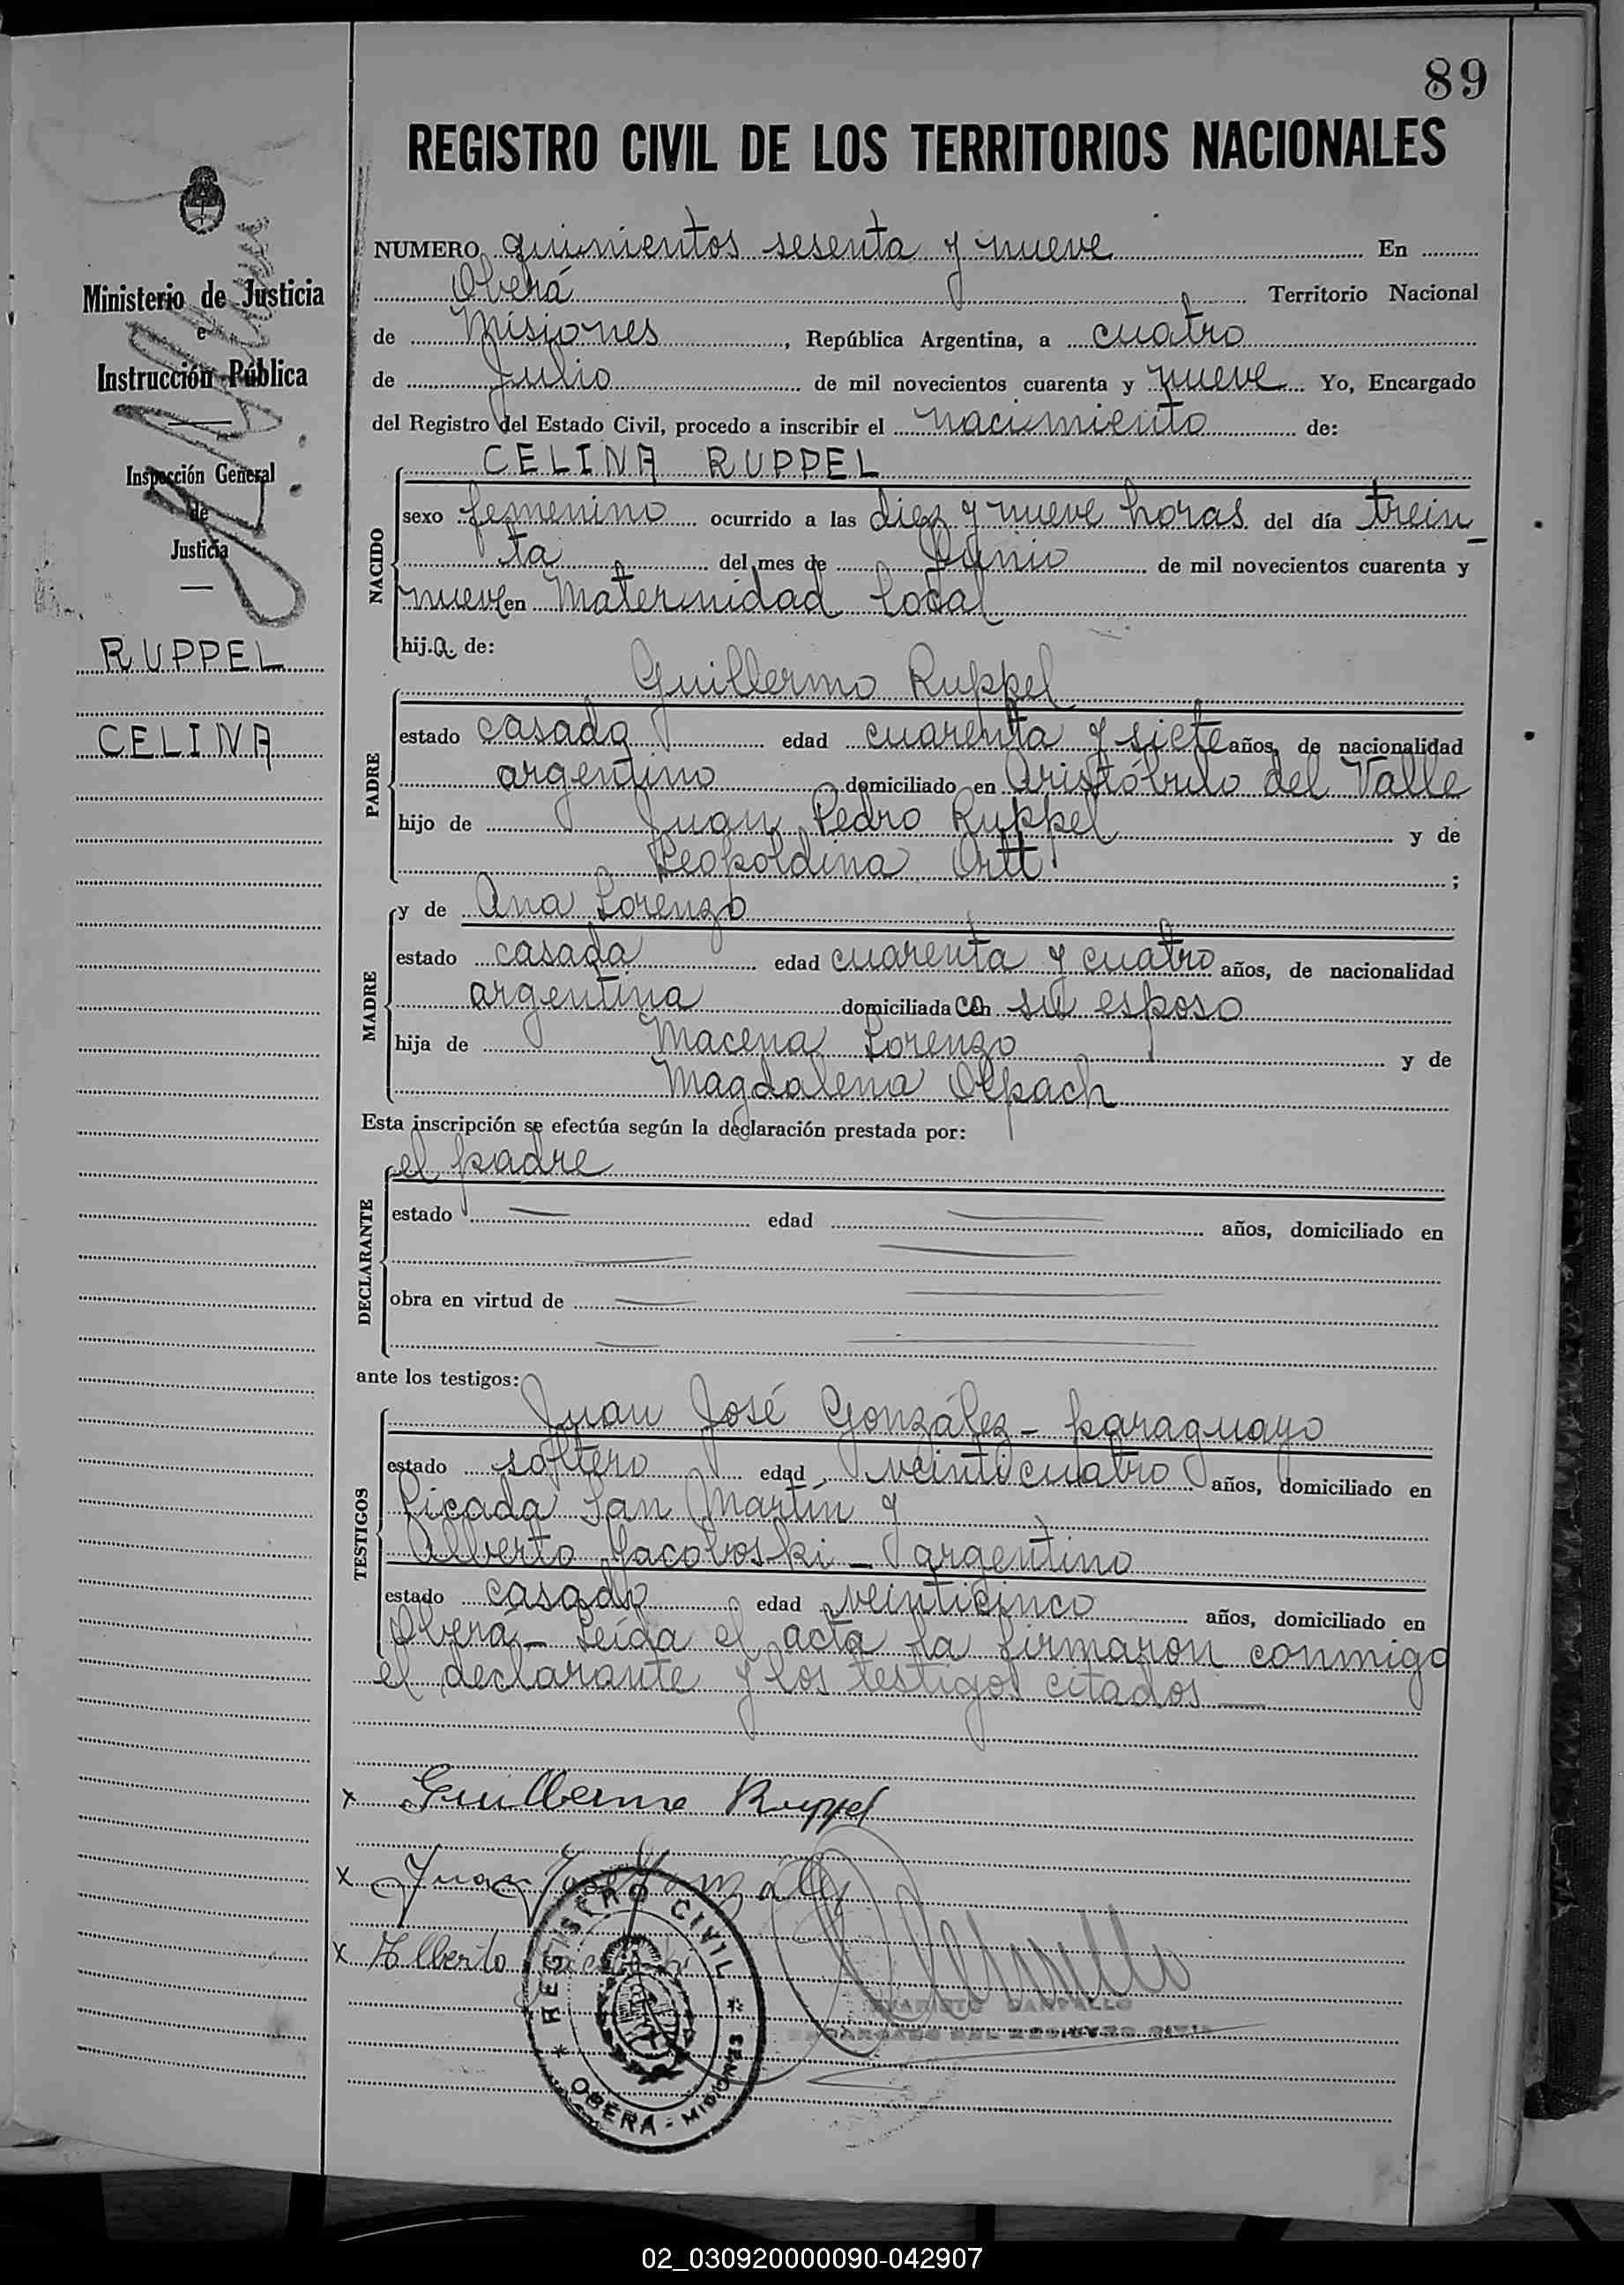 89
REGISTRO CIVIL DE LOS TERRITORIOS NACIONALES
Ministerio de Justicia
e
Instrucción Pública
Inspección General
de
Justicia
RUPPEL
CELINA
NUMERO quinientos sesenta y nueve En
Oberá Territorio Nacional
de Misiones, República Argentina, a cuatro
de Julio de mil novecientos cuarenta y nueve Yo, Encargado
del Registro del Estado Civil, procedo a inscribir el nacimiento de:
CELINA RUPPEL
NACIDO
sexo femenino ocurrido a las diez y nueve horas del día trein
ta del mes de Junio de mil novecientos cuarenta y
nueve en Maternidad Local
hija de:
Guillermo Ruppel
PADRE
estado casado edad cuarenta y siete años, de nacionalidad
argentino domiciliado en Aristóbulo del Valle
hijo de Juan Pedro Ruppel y de
Leopoldina Ortt ;
y de Ana Lorenzo
MADRE
estado casada edad cuarenta y cuatro años, de nacionalidad
argentina domiciliada con su esposo
hija de Macena Lorenzo y de
Magdalena Olpach
Esta inscripción se efectúa según la declaración prestada por:
el padre
DECLARANTE
estado — edad — años, domiciliado en
obra en virtud de —
ante los testigos:
Juan José González - paraguayo
TESTIGOS
estado soltero edad veinticuatro años, domiciliado en
Picada San Martín y
Alberto Jacoboski - argentino
estado casado edad veinticinco años, domiciliado en
Oberá - Leída el acta la firmaron conmigo
el declarante y los testigos citados —
x Guillerme Ruppel
x Juan José González
x Alberto
REGISTRO CIVIL
* OBERA - MISIONES *
ENCARGADO DEL REGISTRO CIVIL
02_030920000090-042907